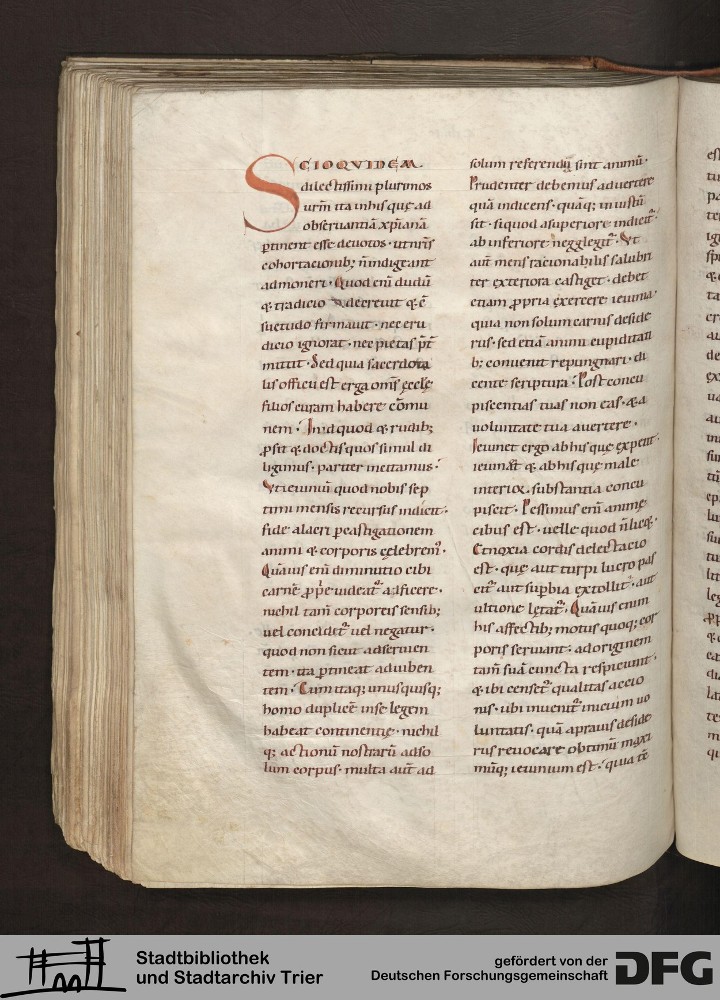 SCIO QVIDEM.
dilectissimi plurimos
urm̄ ita inhis que ad
obseruantiā xp̄ianā
ꝑtinent esse deuotos · ut nr̄is
cohortacionib; n̄ indigeant
admoneri · Quod eni dudū
& tradicio decreuit & c̄
suetudo firmauit · nec eru
dicio ignorat · nec pietas p̄t
mittit · Sed quia sacerdota
lis officii est erga om̄s ęcclę
filios curam habere cōmu
nem · In id quod & rudib;
ꝓsit & doctis quos simul di
ligimus · pariter incitamus ·
Vt ieiuniū quod nobis sep
timi mensis recursus indicit ·
fide alacri ꝑ castigationem
animi & corporis celebrem᷒ ·
Quāuis eni diminutio cibi
carnē ꝓpe uideat᷒ adficere ·
nichil tam̄ corporeis sensib;
uel conceditᷣ uel negatur ·
quod non sicut ad seruien
tem · ita ꝑtineat ad iuben
tem · Cum itaq; unusquisq;
homo duplicē in se legem
habeat continentię · nichil
q; actionū nostrarū ad so
lum corpus · multa aut̄ ad
solum referendū sint animū ·
Prudenter debemus aduertere
quā indicens · quāq; iniustū
sit · si quod a superiore indicitᷣ ·
ab inferiore negglegitᷣ · Vt
aut̄ mens racionabilis salubri
ter exteriora castiget · debet
etiam ꝓpria exercere ieiunia ·
quia non solum carnis deside
rus · sed etiā animi cupiditati
b; conuenit repungnari · di
cente scriptura · Post concu
piscentias tuas non eas · & a
uoluntate tua auertere ·
Ieiunet ergo ab his que expetit
ieiunat & ab his que male
interior substantia concu
piscit · Pessimus eni animę
cibus est · uelle quod n̄ liceat ·
Et noxia cordis delectacio
est · que aut turpi lucro pas
citᷣ aut suꝑbia extollitᷣ · aut
ultione lętatᷣ · Quāuis enim
his affectib; motus quoq; cor
poris seruiant · ad originem
tam̄ suā cuncta respiciunt ·
& ibi censetᷣ qualitas accio
nis · ubi inuenitᷣ inicium uo
luntatis · quā a prauis deside
rus reuocare obtimū maxi
mūq; ieiunium est · quia tc̄
Stadtbibliothek
und Stadtarchiv Trier
gefördert von der
Deutschen Forschungsgemeinschaft
DFG